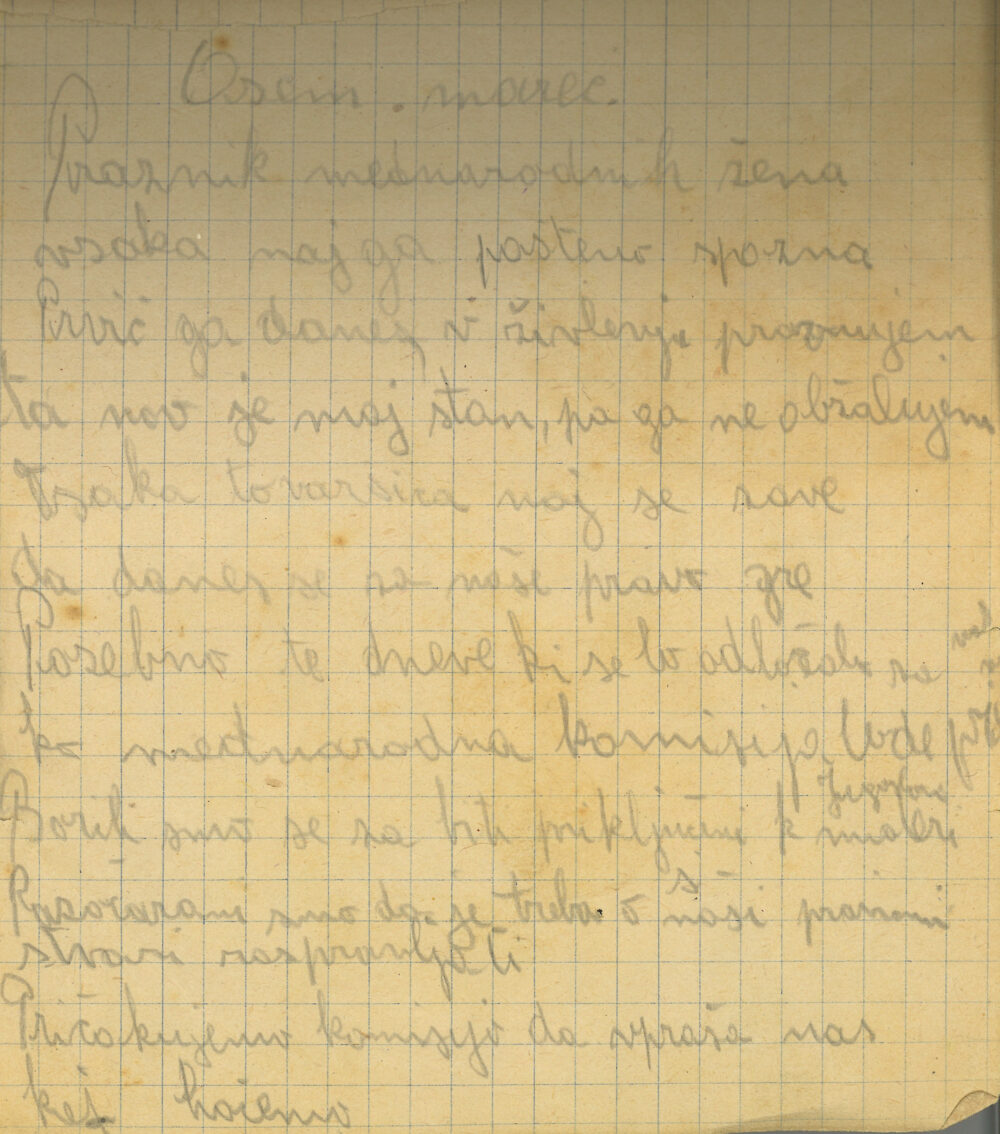 Osem. marec.
Praznik mednarodnih žena
vsaka naj ga pošteno spozna
Prvič ga danes v živlenju praznujem
ta nov je moj stan, pa ga ne obžalujem
Vsaka tovaršica naj se zave
da danes se za naše pravo gre
Posebno te dneve ki se bo odločalo za
ko mednarodna komisija bode
Borili smo se za biti priključeni k
Jugoslov
materi
smo da je treba o naši
stvari razpravljati
Pričakujemo komisijo da vpraša nas
kej hočemo